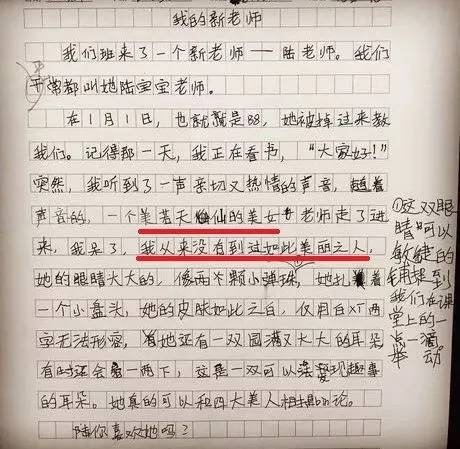 我的新老师
我们班来了一个新老师——陆老师。我们
平常都叫她陆宝宝老师。
在1月1日，也就是88，她被掉过来教
我们。记得那一天，我正在看书，“大家好！”
突然，我听到了一声亲切又热情的声音，趁着
声音的，一个美若天仙的美女老师走了进
来，我呆了，我从来没有到过如此美丽之人，
她的眼睛大大的，像两颗小弹珠，她扎着
一个小盘头，她的皮肤如此之白，仅用白X丁两
字无法形容，有她还有一双圆满又大大的耳朵
有时还会一两下，这是一双可以发现趣事
的耳朵。她真的可以和四大美人相提并论。
陆你喜欢她吗？
①这双眼
睛可以
敏捷的
捕捉到
我们在课
堂上的一
点一滴。
举动